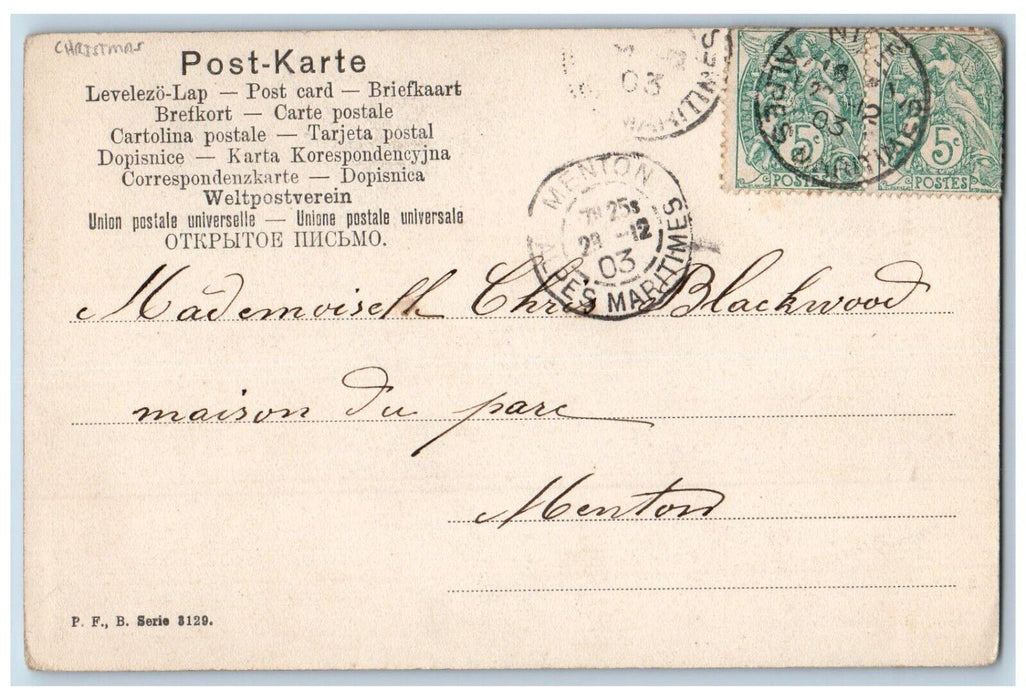 CHRISTMAS
Post-Karte
Levelezö-Lap — Post card — Briefkaart
Brefkort — Carte postale
Cartolina postale — Tarjeta postal
Dopisnice — Karta Korespondencyjna
Correspondenzkarte — Dopisnica
Weltpostverein
Union postale universelle — Unione postale universale
ОТКРЫТОЕ ПИСЬМО.
03
MARITIMES
5c
POSTES
5c
POSTES
03
ALPES MARITIMES
MENTON
25s
12
03
MARITIMES
Mademoiselle Chris Blackwood
maison du parc
Menton
P. F., B. Serie 3129.